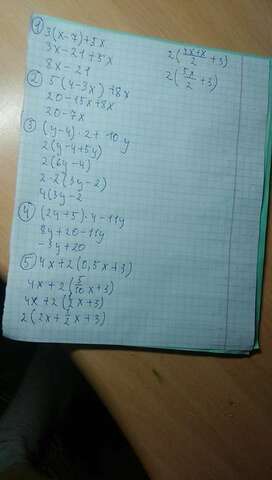 ① 3(x-7)+5x
3x-21+5x
8x-21
② 5(4-3x)+8x
20-15x+8x
20-7x
③ (y-4)·2+10y
2(y-4+5y)
2(6y-4)
2·2(3y-2)
4(3y-2
④ (2y+5)·4-11y
8y+20-11y
-3y+20
⑤ 4x+2(0,5x+3)
4x+2(5/10x+3)
4x+2(1/2x+3)
2(2x+1/2x+3)
2(5x/2+3)